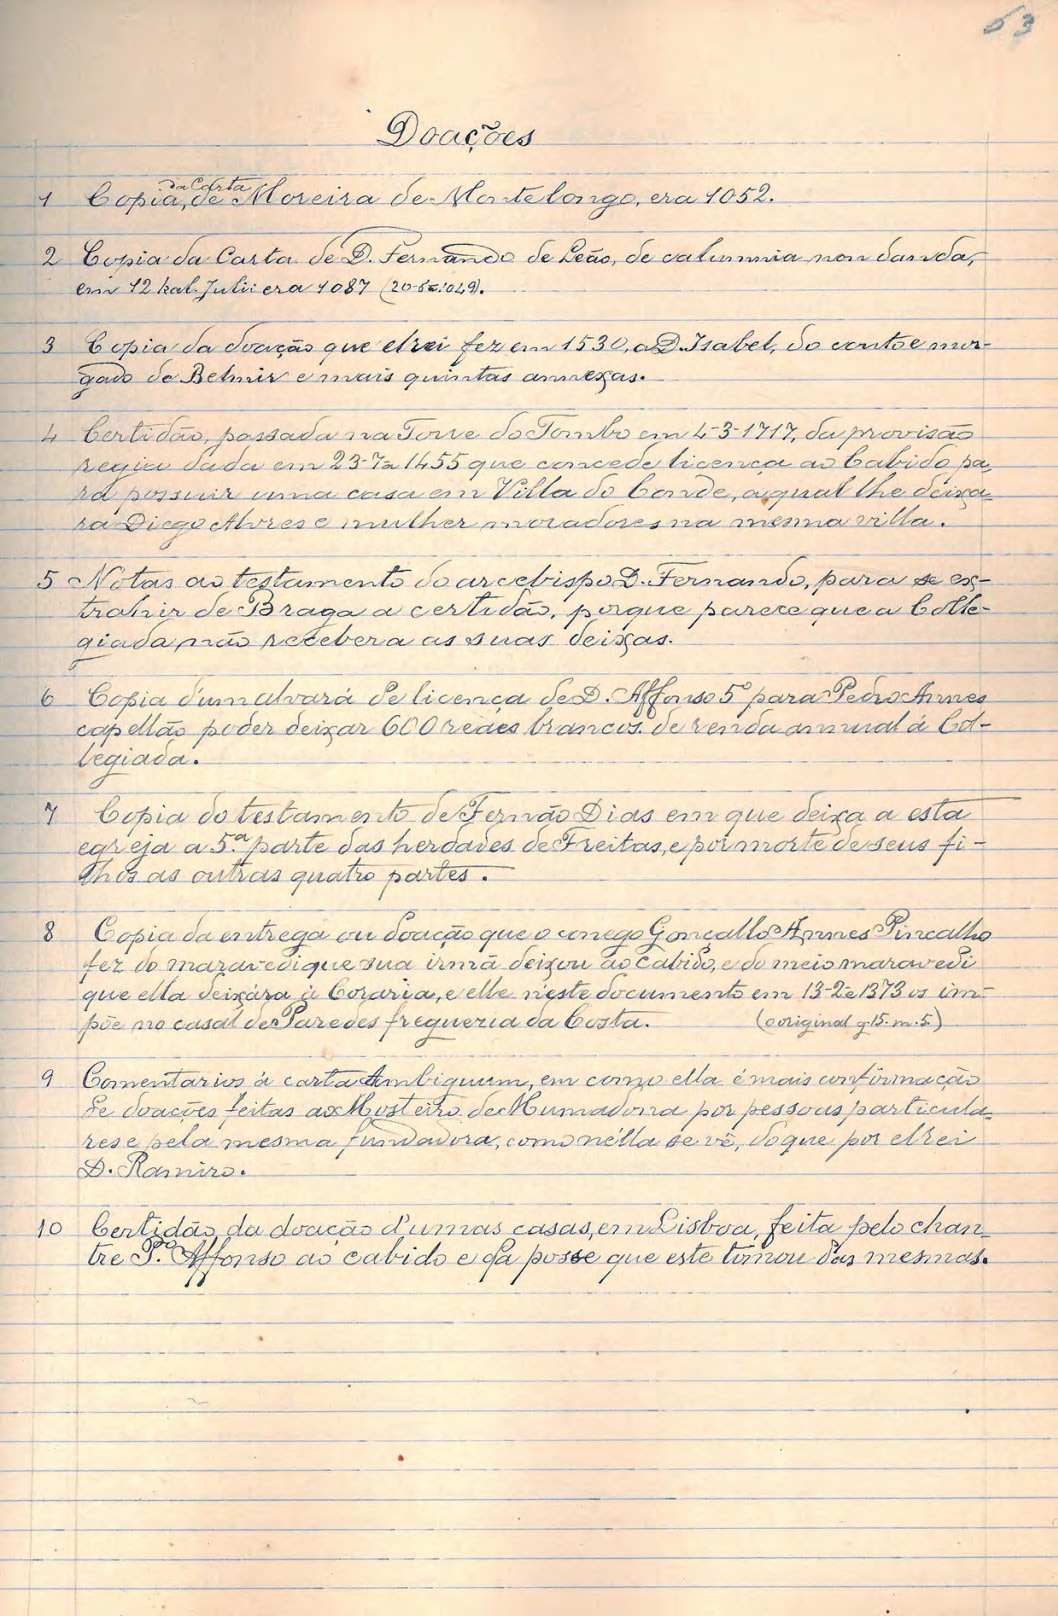 63
Doações
da Carta
1 Copia, de Moreira de Montelongo, era 1052.
2 Copia da Carta de D. Fernando de Leão, de calumnia non danda,
em 12 kal. Julii era 1087 (20-6º-1049).
3 Copia da doação que elrei fez em 1530, a D. Isabel, do couto e mor-
gado de Belmir e mais quintas annexas.
4 Certidão, passada na Torre do Tombo em 4-3-1717, da provisão
regia dada em 23-7º-1455 que concede licença ao Cabido pa-
ra possuir uma casa em Villa do Conde, a qual lhe deixa-
ra Diego Alvres e mulher moradores na mesma villa.
5 Notas ao testamento do arcebispo D. Fernando, para se ex-
trahir de Braga a certidão, porque parece que a Colle-
giada não recebera as suas deixas.
6 Copia d'um alvará de licença de D. Affonso 5º para Pedro Annes
capellão poder deixar 600 reaes brancos de renda annual á Col-
legiada.
7 Copia do testamento de Fernão Dias em que deixa a esta
egreja a 5.ª parte das herdades de Freitas, e por morte de seus fi-
lhos as outras quatro partes.
8 Copia da entrega ou doação que o conego Gonçallo Annes Pincalho
fez do maravedi que sua irmã deixou ao Cabido, e do meio maravedi
que ella deixára á Coraria, e elle n'este documento em 13-2º-1373 os im-
põe no casal de Paredes freguezia da Costa. (o original g. 15. m. 5.)
9 Comentarios á carta Ambiguum, em como ella é mais confirmação
de doações feitas ao Mosteiro de Mumadona por pessoas particula-
res e pela mesma fundadora, como nélla se vê, do que por elrei
D. Ramiro.
10 Certidão da doação d'umas casas, em Lisboa, feita pelo chan-
tre P.º Affonso ao cabido e da posse que este tomou das mesmas.